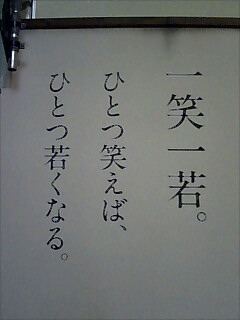 一笑一若。
ひとつ笑えば、
ひとつ若くなる。